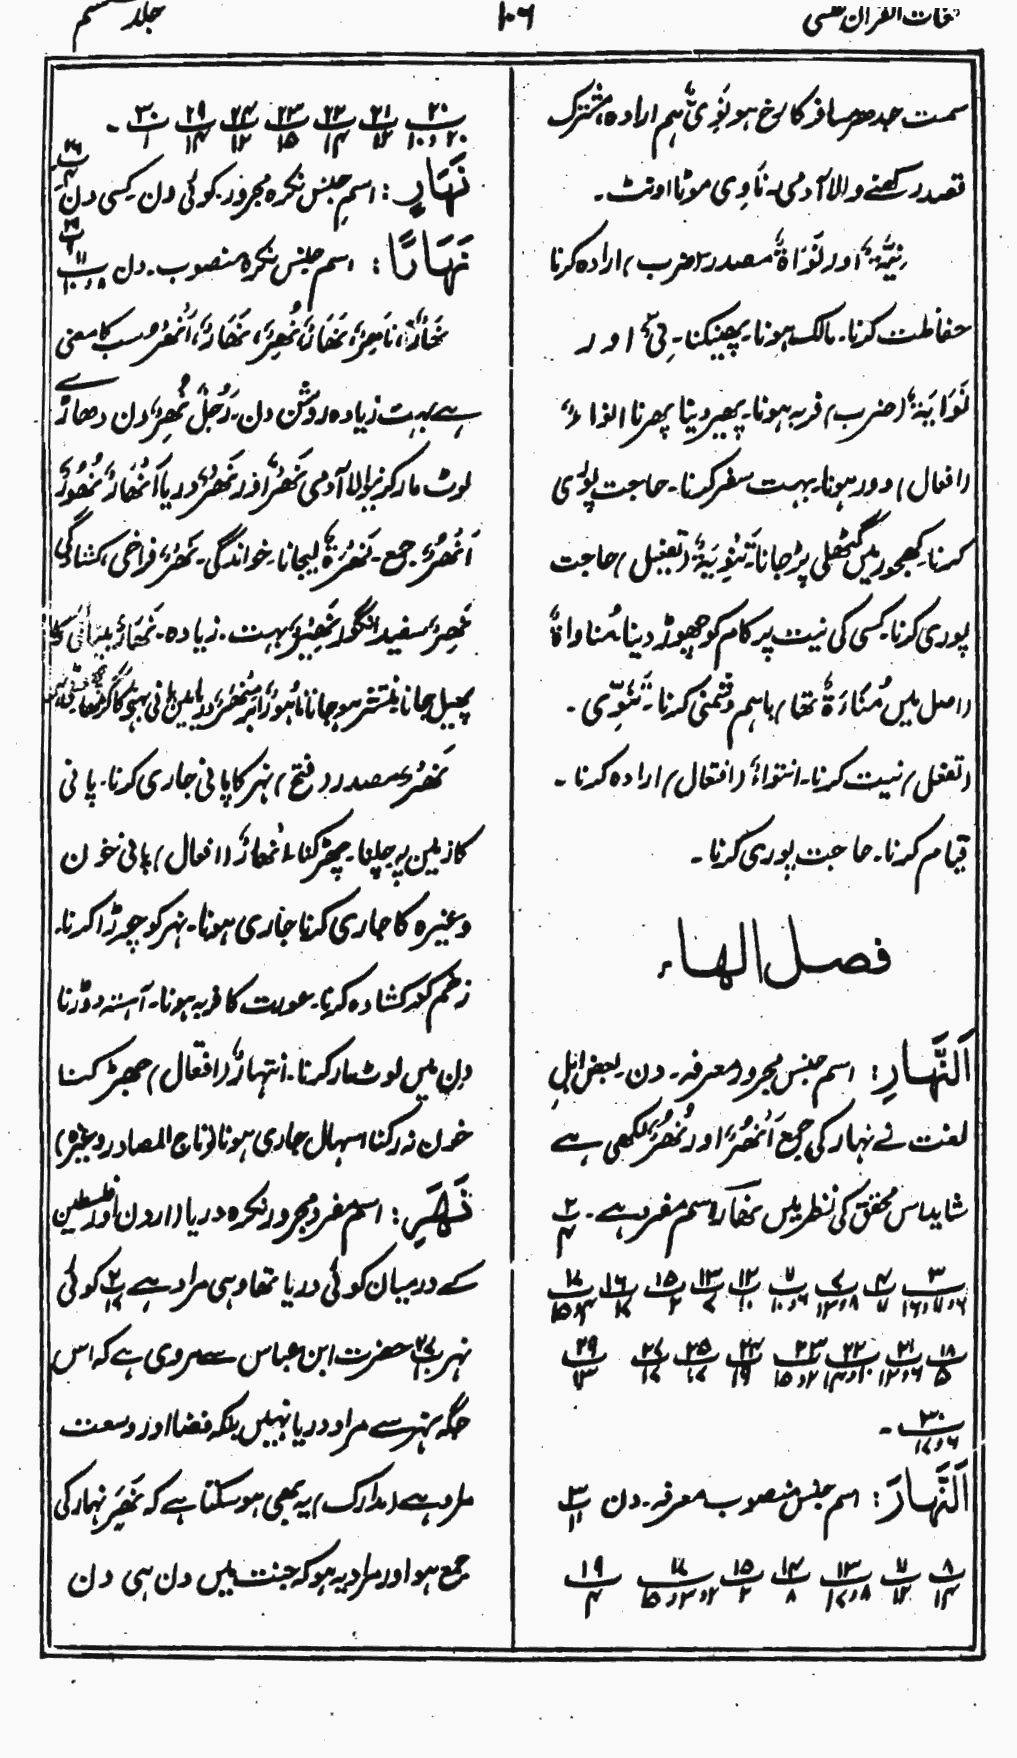 لغات القرآن ۱۰۶ جلد ششم
سمت جدھر مسافر کا رخ ہو نَوِیٌّ ہم ارادہ، مشترک
قصد رکھنے والا آدمی۔ نَاوِی موٹا اونٹ۔
نِیَّۃٌ اور نَوَاۃٌ مصدر (ضرب) ارادہ کرنا
حفاظت کرنا۔ مالک ہونا۔ پھینکنا۔ نِیٌّ اور
نَوَایَۃٌ (ضرب) فربہ ہونا۔ پھیر دینا پھرنا انواءٌ
(افعال) دور ہونا۔ بہت سفر کرنا۔ حاجت پوری
کرنا۔ کھجور میں گٹھلی پڑ جانا۔ تَنْوِیَۃٌ (تفعیل) حاجت
پوری کرنا۔ کسی کی نیت پر کام کو چھوڑ دینا مُناواۃٌ
(اصل میں مُنَاءَۃٌ تھا) باہم دشمنی کرنا۔ تَنَوِّی۔
(تفعل) نیت کرنا۔ انتواءٌ (افتعال) ارادہ کرنا۔
قیام کرنا۔ حاجت پوری کرنا۔
فصل الہاء
اَلنَّہَارِ: اسم جنس مجرور معرفہ۔ دن۔ بعض اہل
لغت نے نہار کی جمع اَنْھُرٌ اور نُھُرٌ لکھی ہے
شاید اس محقق کی نظر میں نھار اسم مفرد ہے۔ ۲/۴
۳/۶و۷و۱۶ ۴/۷ ۷/۸و۱۳ ۷/۶و۱۰ ۱۲/۱۰ ۱۳/۷ ۱۵/۲ ۱۶/۱۷
۱۸/۵ ۲۱/۶و۱۲ ۲۳/۲و۱۵ ۲۴/۱۹ ۲۵/۱۷ ۲۷/۱۷ ۲۹/۱۳
۳۰/۶و۱۷۔
اَلنَّہَارَ: اسم جنس منصوب معرفہ۔ دن ۳/۱۱
۸/۱۴ ۷/۱۲ ۱۳/۸و۱۷ ۱۴/۸ ۱۵/۲ ۱۷/۲و۳و۱۵ ۱۹/۴
۲۰/۱۰و۲۰ ۲۱/۱۲ ۲۲/۱۴ ۲۳/۱۵ ۲۴/۱۲ ۲۹/۱۴ ۳۰/۱۔
نَہَارٍ: اسمِ جنس نکرہ مجرور۔ کوئی دن۔ کسی دن ۲۶/۴
نَہَارًا: اسم جنس نکرہ منصوب۔ دن ۱۱/۸و۱۰ ۲۹/۹
سب کا معنی
ہے بہت زیادہ روشن دن۔ رَجُلٌ نَھِرٌ دن دھاڑے
لوٹ مار کرنے والا آدمی نَھْرٌ اور نَھَرٌ دریا اَنْھَارٌ نُھُورٌ
اَنْھُرٌ جمع۔ نَھْرَۃٌ لیجانا۔ خواندگی۔ نَھَرٌ فراخی، کشادگی
نَھِرٌ سفید انگور نَھِیْرٌ بہت۔ زیادہ۔
پھیل جانا منتشر ہو جانا
نَھْرٌ مصدر (فتح) نہر کا پانی جاری کرنا۔ پانی
کا زمین پر چلنا۔ جھڑکنا۔ اِنْھَارٌ (افعال) پانی خون
وغیرہ کا جاری کرنا جاری ہونا۔ نہر کو چوڑا کرنا۔
زخم کو کشادہ کرنا۔ عورت کا فربہ ہونا۔ آہستہ دوڑنا
دن میں لوٹ مار کرنا۔ انتہارٌ (افتعال) جھڑکنا
خون نہ رکنا اسہال جاری ہونا (تاج المصادر وغیرہ)
نَہَرٍ: اسم مفرد مجرور نکرہ دریا (اردن اور فلسطین
کے درمیان کوئی دریا تھا وہی مراد ہے ۲/۱۷ کوئی
نہر ۲۷/۱۰ حضرت ابن عباس سے مروی ہے کہ اس
جگہ نہر سے مراد دریا نہیں بلکہ فضا اور وسعت
مراد ہے (مدارک) یہ بھی ہو سکتا ہے کہ نَھَر نہار کی
جمع ہو اور مراد یہ ہو کہ جنت میں دن ہی دن